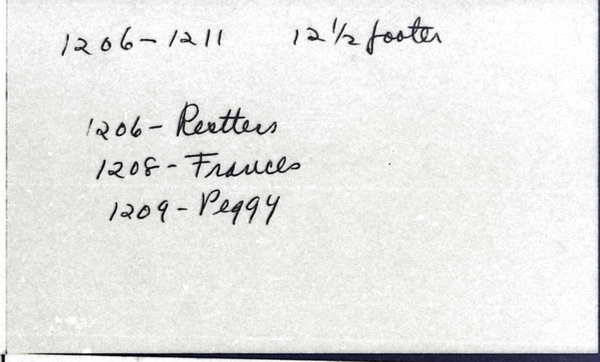 1206-1211 12 1/2 footer
1206-
1208- Frances
1209- Peggy